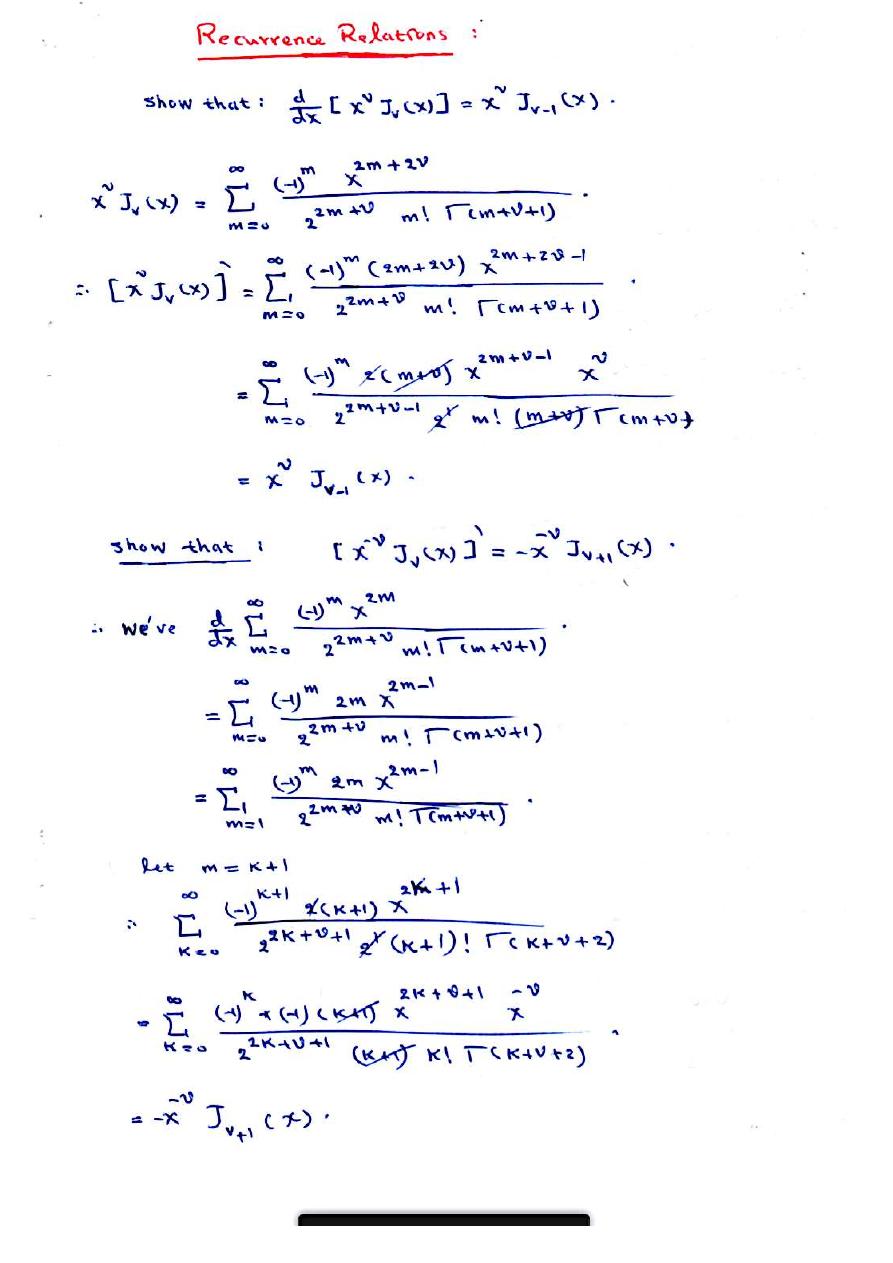 Recurrence Relations :
show that : d/dx [ x^ν J_ν(x) ] = x^ν J_{ν-1}(x) .
x^ν J_ν(x) = Σ_{m=0}^{∞} (-1)^m x^{2m+2ν} / 2^{2m+ν} m! Γ(m+ν+1) .
∴ [x^ν J_ν(x)]` = Σ_{m=0}^{∞} (-1)^m (2m+2ν) x^{2m+2ν-1} / 2^{2m+ν} m! Γ(m+ν+1) .
= Σ_{m=0}^{∞} (-1)^m 2(m+ν) x^{2m+ν-1} x^ν / 2^{2m+ν-1} 2^1 m! (m+ν) Γ(m+ν)
= x^ν J_{ν-1}(x) .
show that : [ x^{-ν} J_ν(x) ]` = -x^{-ν} J_{ν+1}(x) .
∴ we've d/dx Σ_{m=0}^{∞} (-1)^m x^{2m} / 2^{2m+ν} m! Γ(m+ν+1) .
= Σ_{m=0}^{∞} (-1)^m 2m x^{2m-1} / 2^{2m+ν} m! Γ(m+ν+1)
= Σ_{m=1}^{∞} (-1)^m 2m x^{2m-1} / 2^{2m+ν} m! Γ(m+ν+1) .
let m = k+1
∴ Σ_{k=0}^{∞} (-1)^{k+1} 2(k+1) x^{2k+1} / 2^{2k+ν+1} 2^1 (k+1)! Γ(k+ν+2)
= Σ_{k=0}^{∞} (-1)^k * (-1) (k+1) x^{2k+ν+1} x^{-ν} / 2^{2k+ν+1} (k+1) k! Γ(k+ν+2) .
= -x^{-ν} J_{ν+1}(x) .